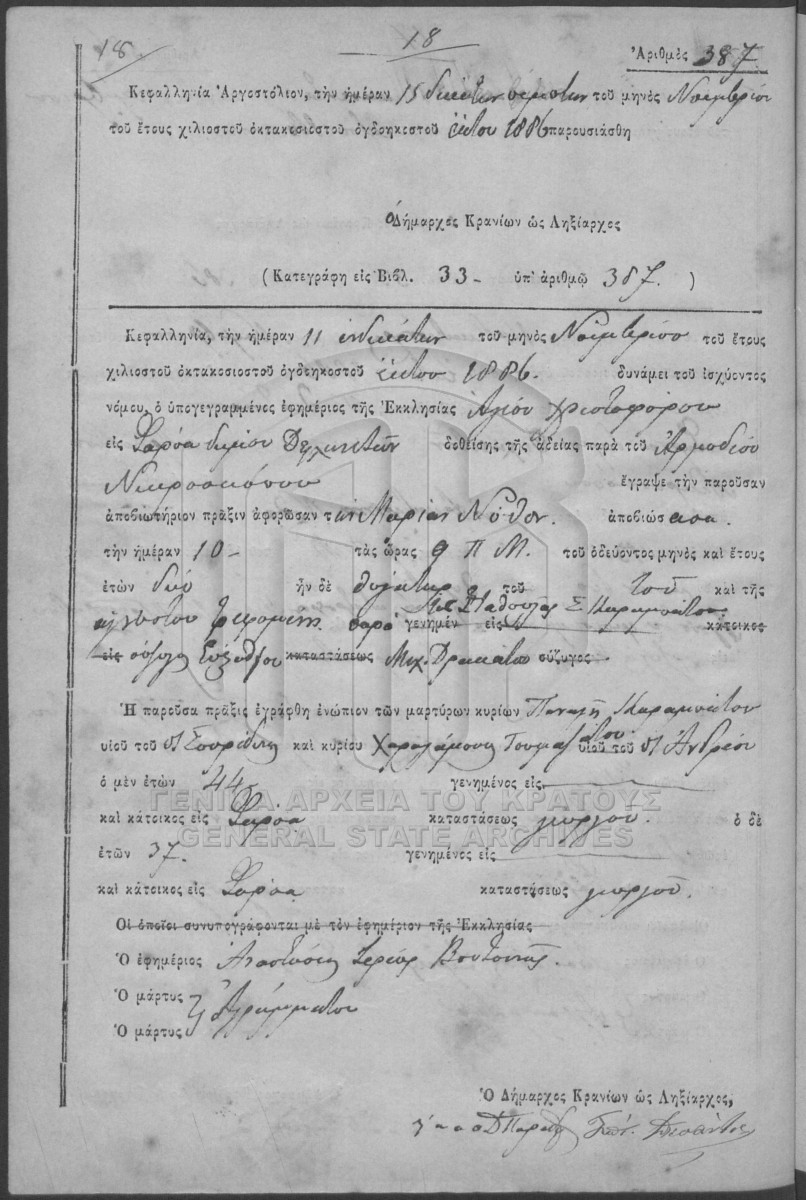 18 18 Ἀριθμὸς 387
Κεφαλληνία Ἀργοστόλιον, τὴν ἡμέραν 15 δεκάτην πέμπτην τοῦ μηνὸς Νοεμβρίου
τοῦ ἔτους χιλιοστοῦ ὀκτακοσιοστοῦ ὀγδοηκοστοῦ ἕκτου 1886 παρουσιάσθη
ὁ Δήμαρχος Κρανίων ὡς Ληξίαρχος
(Κατεγράφη εἰς Βιβλ. 33 - ὑπ' ἀριθμῷ 387.)
Κεφαλληνία, τὴν ἡμέραν 11 ἑνδεκάτην τοῦ μηνὸς Νοεμβρίου τοῦ ἔτους
χιλιοστοῦ ὀκτακοσιοστοῦ ὀγδοηκοστοῦ ἕκτου 1886. δυνάμει τοῦ ἰσχύοντος
νόμου, ὁ ὑπογεγραμμένος ἐφημέριος τῆς Ἐκκλησίας Ἁγίου Χριστοφόρου
εἰς δοθείσης τῆς ἀδείας παρὰ τοῦ Ἁρμοδίου
Νεκροσκόπου ἔγραψε τὴν παροῦσαν
ἀποβιωτήριον πρᾶξιν ἀφορῶσαν τὴν Μαρίαν Νόθον. ἀποβιώσασα.
τὴν ἡμέραν 10 - τὰς ὥρας 9 Π Μ. τοῦ ὁδεύοντος μηνὸς καὶ ἔτους
ἐτῶν δύο ἦν δὲ θυγάτηρ τοῦ τοῦ καὶ τῆς
ἀγνώστου παρὰ τῆς Σταθούλας Σ Καραμπάτου γενημὲν εἰς κάτοικος
εἰς σύζυγος καταστάσεως Μιχ. Δρακάτο σύζυγος
Ἡ παροῦσα πρᾶξις ἐγράφθη ἐνώπιον τῶν μαρτύρων κυρίων Παναγῆ Καραμπάτου
υἱοῦ τοῦ Σπυρίδων καὶ κυρίου Χαραλάμπους υἱοῦ τοῦ Ἀνδρέου
ὁ μὲν ἐτῶν 44 γενημένος εἰς
καὶ κάτοικος εἰς καταστάσεως γεωργοῦ. ὁ δὲ
ΓΕΝΙΚΑ ΑΡΧΕΙΑ ΤΟΥ ΚΡΑΤΟΥΣ
GENERAL STATE ARCHIVES
ἐτῶν 37. γενημένος εἰς
καὶ κάτοικος εἰς καταστάσεως γεωργοῦ.
Οἱ ὁποῖοι συνυπογράφονται μὲ τὸν ἐφημέριον τῆς Ἐκκλησίας
Ὁ ἐφημέριος Ἀναστάσιος Ἱερεὺς
Ὁ μάρτυς Ἀγράμματοι
Ὁ μάρτυς
Ὁ Δήμαρχος Κρανίων ὡς Ληξίαρχος,